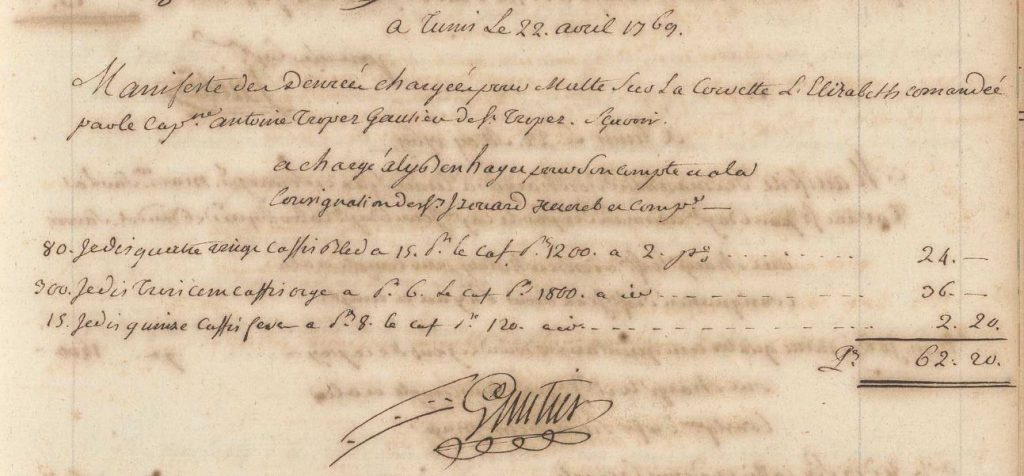 a Tunis Le 22. avril 1769.
Manifeste des Denreé chargéé pour Malte Sur La Corvette L'Elizabeth comandéé
par le Cap.ne antoine Tropez Gautier de St. Tropez. Sçavoir.
a chargé aly Ben hayer pour Son compte a la
Consignation de Sr. Isouard et Comp.e —
80. Je dis quatre vingt Caffis Bled a 15. Prs le caf Prs 1200. a 2. p% . . . . . . . . . 24. —
300. Je dis Trois cem Caffis orge a Prs 6. Le caf Prs 1800. a id — - - - - - - - - - 36. —
15. Je dis quinze Caffis feve a Prs 8. le caf Prs 120. a id - - - - - - - - - - - 2. 20.
Prs 62. 20.
Gautier